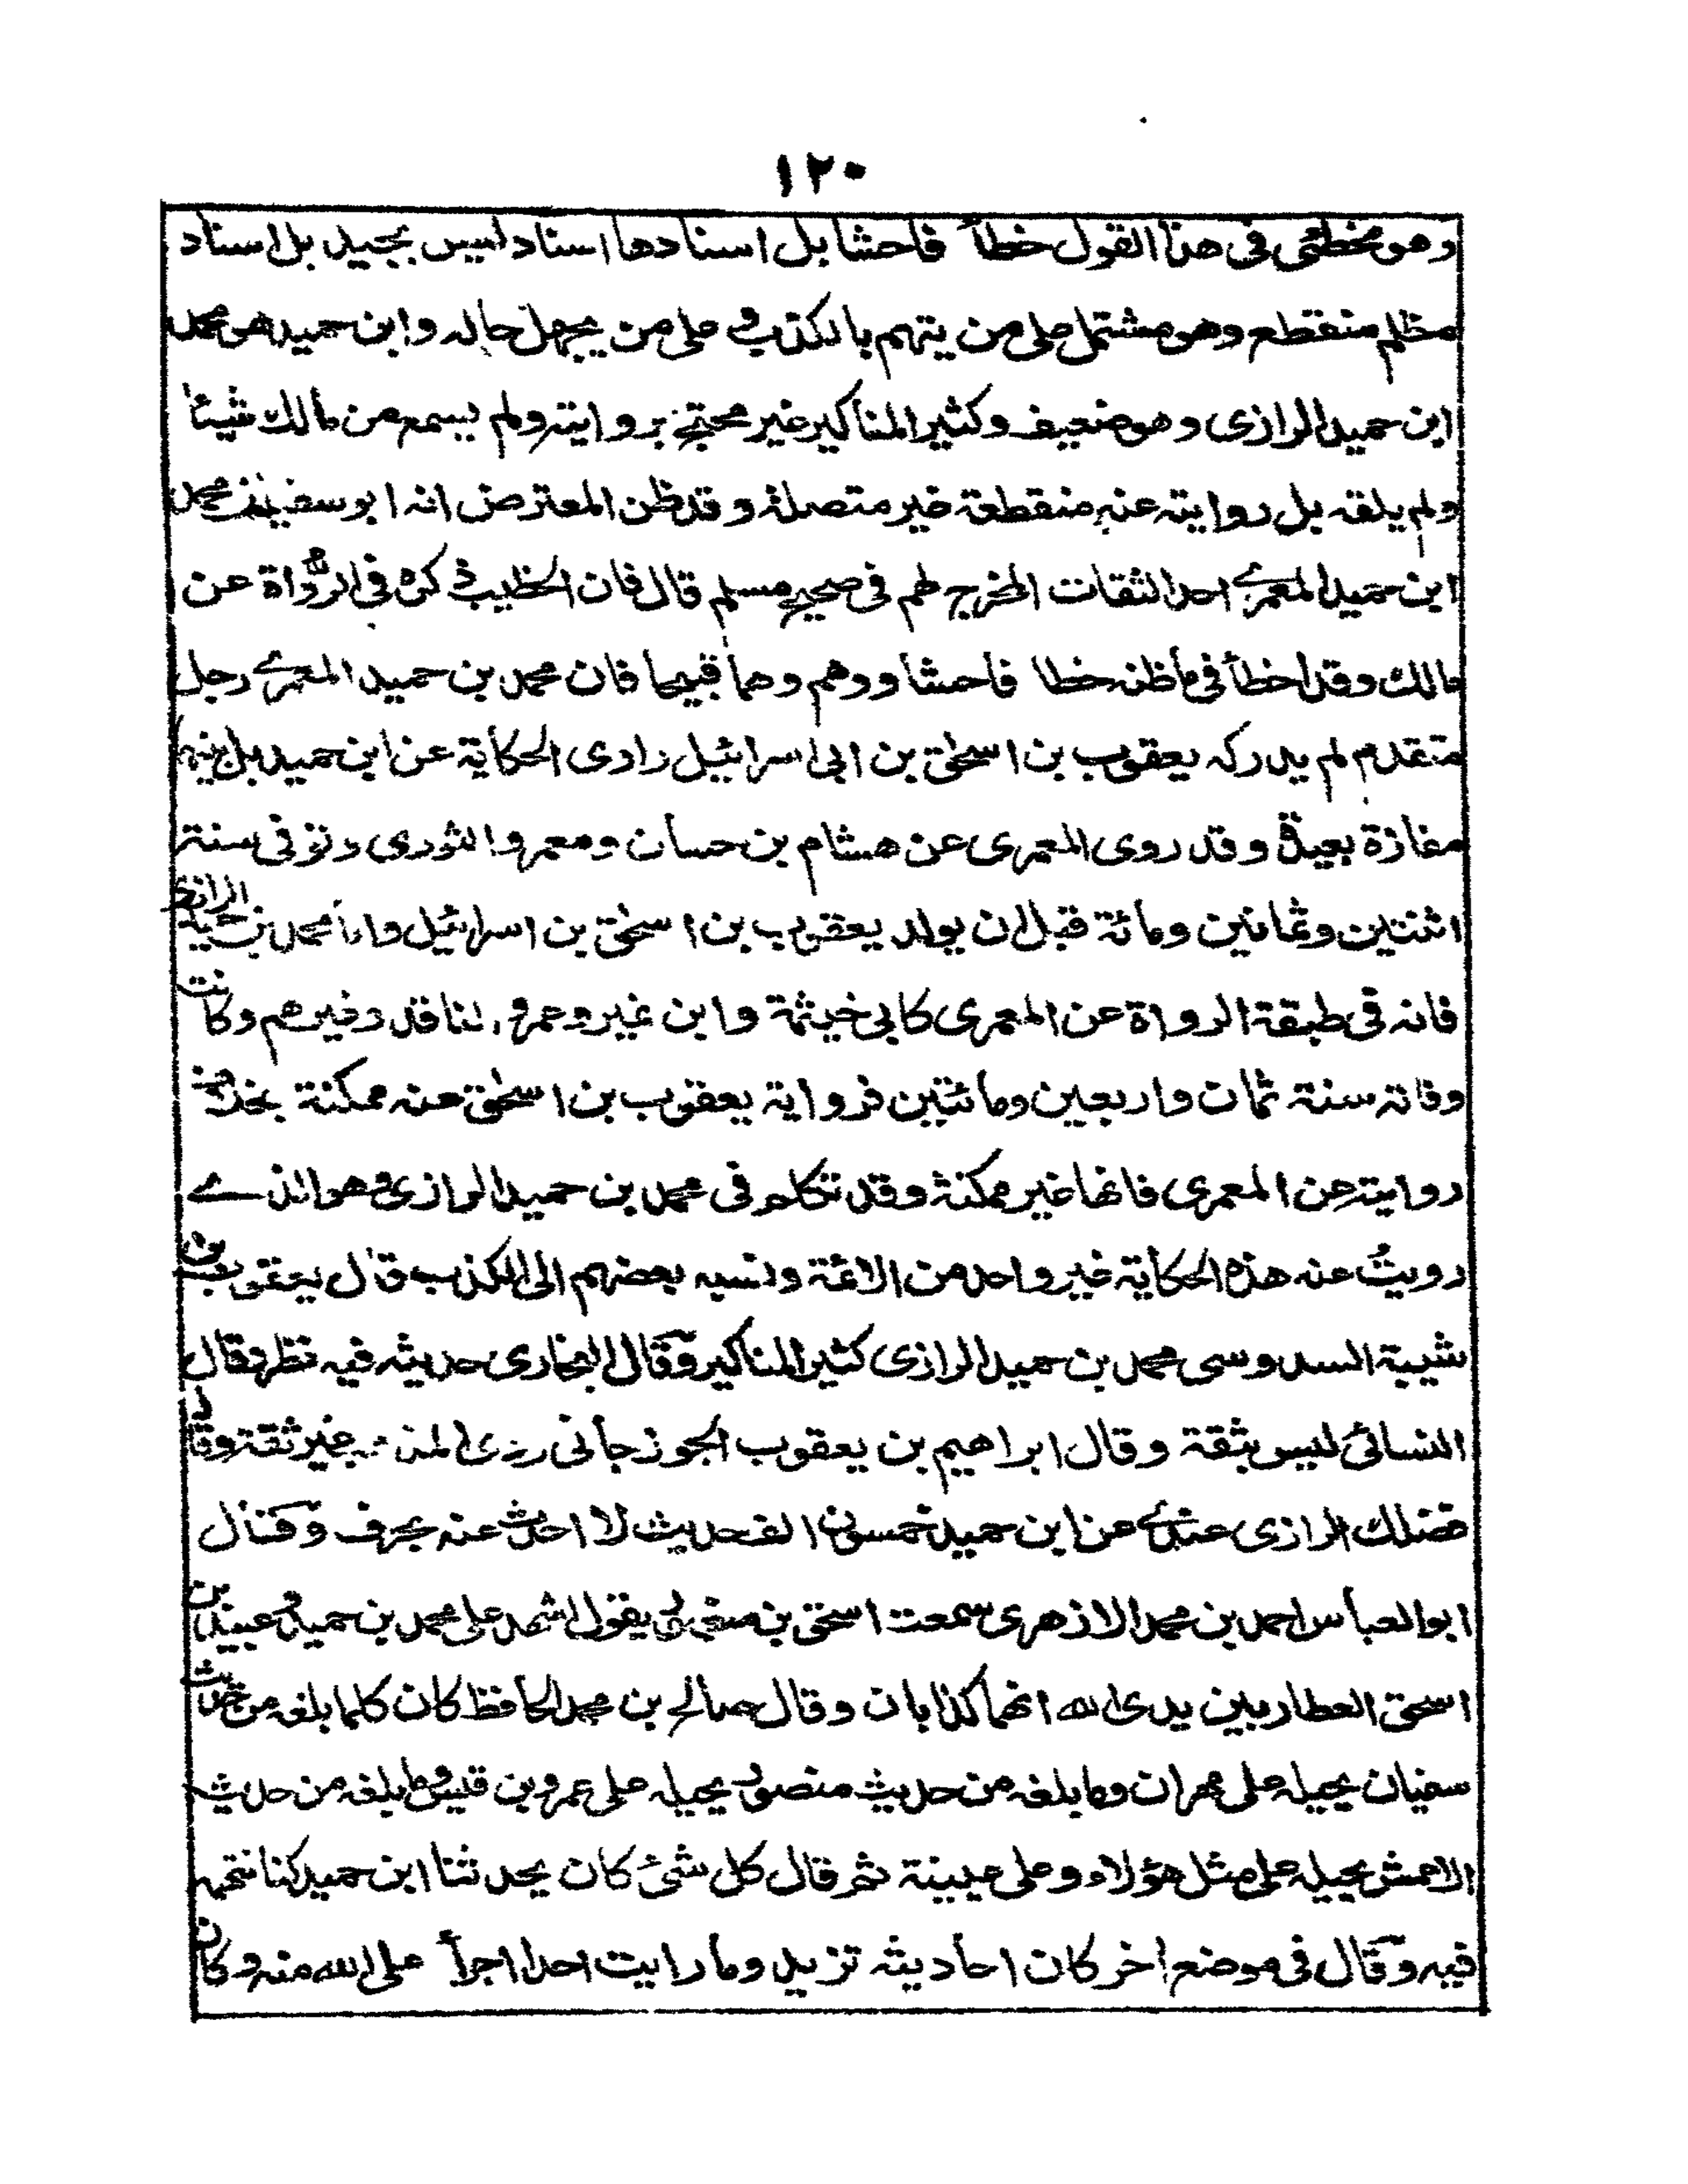 ١٢٠
وهو مخطئ في هذا القول خطأ فاحشا بل اسنادها اسناد ليس بجيد بل اسناد
مظلم منقطع وهو مشتمل على من يتهم بالكذب وعلى من يجهل حاله وابن حميد هو محمد
ابن حميد الرازى وهو ضعيف وكثير المناكير غير محتج بروايته ولم يسمع من مالك شيئا
ولم يلقه بل روايته عنه منقطعة غير متصلة وقد ظن المعترض انه ابو سفين محمد
ابن حميد المعمرى احد الثقات المخرج لهم فى صحيح مسلم قال فان الخطيب ذكره فى الرواة عن
مالك وقد اخطأ فى ما ظنه خطا فاحشا ووهم وهما قبيحا فان محمد بن حميد المعمرے رجل
متقدم لم يدركه يعقوب بن اسحٰق بن ابى اسرائيل راوى الحكاية عن ابن حميد بل بينهما
مفازة بعيدة وقد روى المعمرى عن هشام بن حسان ومعمر والثورى وتوفى سنة
اثنتين وثمانين ومائة قبل ان يولد يعقوب بن اسحٰق بن اسرائيل واما محمد بن حميد الرازى
فانه فى طبقة الرواة عن المعمرى كابى خيثمة وابن نمير وعمرو الناقد وغيرهم وكانت
وفاته سنة ثمان واربعين ومائتين فرواية يعقوب بن اسحٰق عنه ممكنة بخلاف
روايته عن المعمرى فانها غير ممكنة وقد تكلم فى محمد بن حميد الرازى وهو الذے
رويت عنه هذه الحكاية غير واحد من الائمة ونسبه بعضهم الى الكذب قال يعقوب بن
شيبة السدوسى محمد بن حميد الرازى كثير المناكير وقال البخارى حديثه فيه نظر وقال
النسائى ليس بثقة وقال ابراهيم بن يعقوب الجوزجانى ردى المذهب غير ثقة وقال
فضلك الرازى عندے عن ابن حميد خمسون الف حديث لا احدث عنه بحرف وقال
ابو العباس احمد بن محمد الازهرى سمعت اسحٰق بن منصور يقول اشهد على محمد بن حميد وعبيد بن
اسحٰق العطار بين يدى الله انهما كذابان وقال صالح بن محمد الحافظ كان كلما بلغه من حديث
سفيان يحيله على مهران وما بلغه من حديث منصور يحيله على عمرو بن قيس وما بلغه من حديث
الاعمش يحيله على مثل هؤلاء وعلى عيينة ثم قال كل شئ كان يحدثنا ابن حميد كنا نتهمه
فيه وقال فى موضع اخر كان احاديثه تزيد وما رايت احدا اجرأ على الله منه وكان